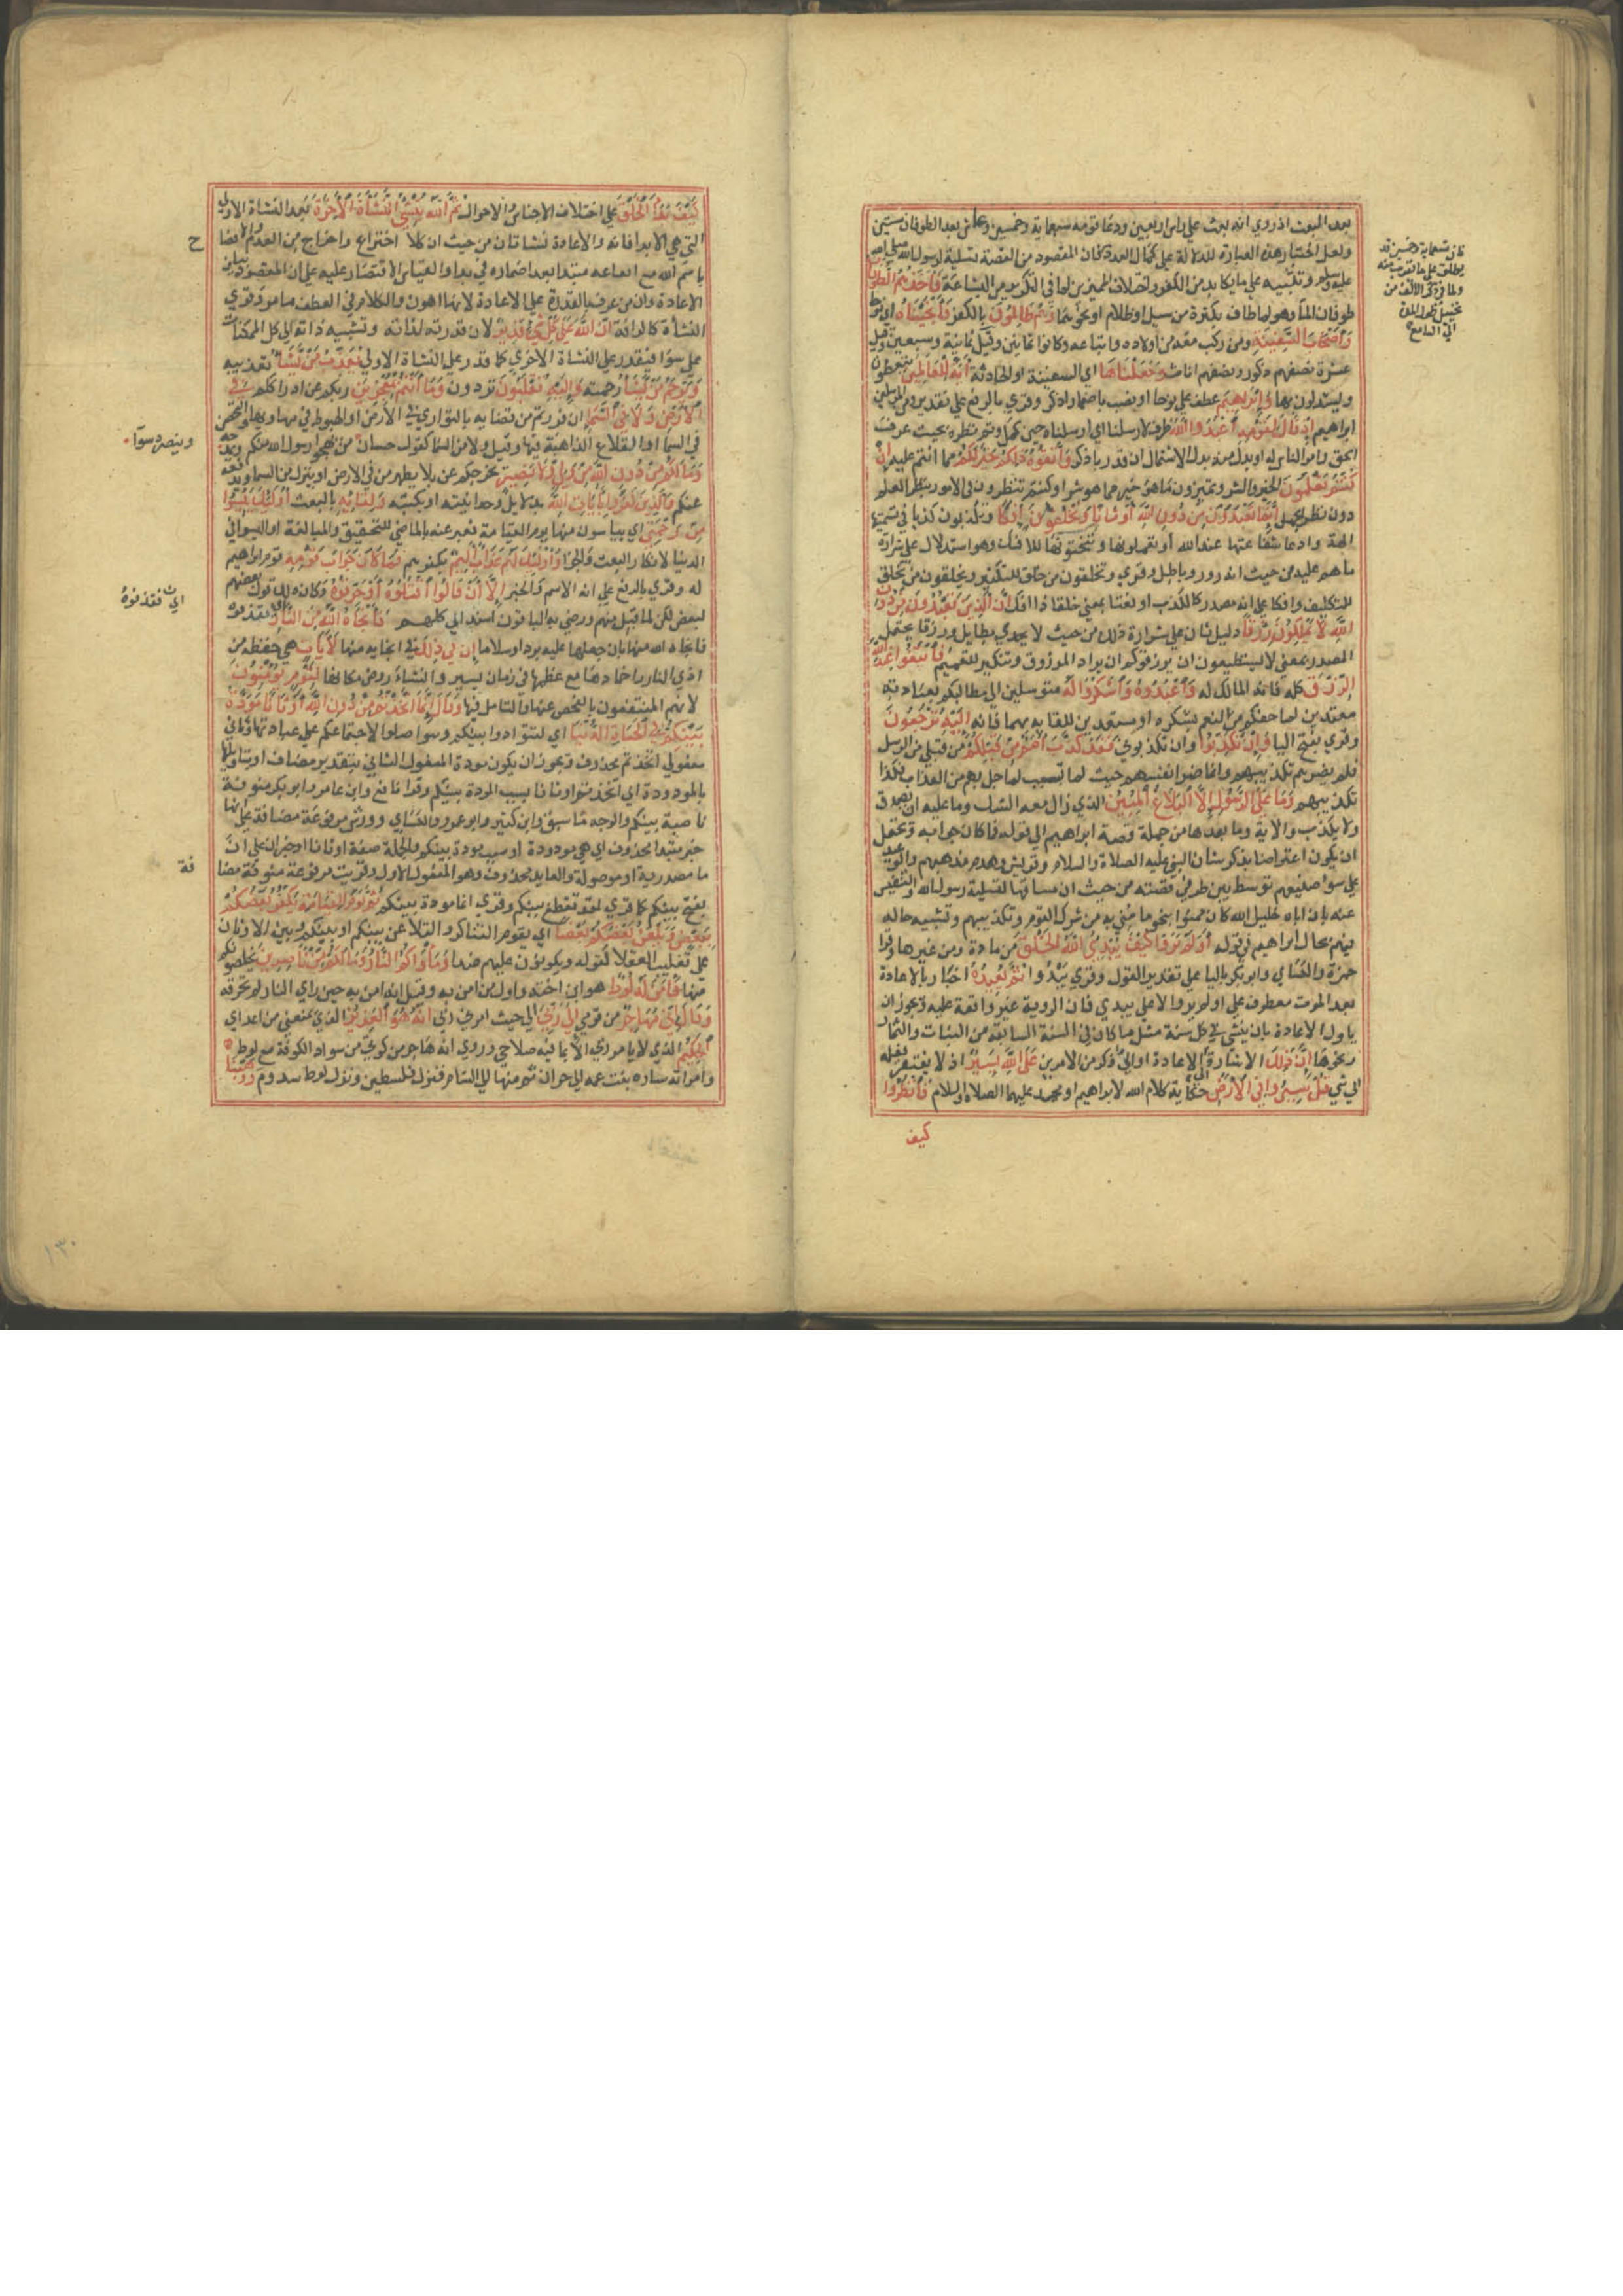 بعد المبعث اذ روي انه بعث علي راس اربعين ودعا قومه تسعماية وخمسين وعاش بعد الطوفان ستين
ولعل اختيار هذه العبارة للدلالة علي كمال العدد فان المقصود من القصة تسلية لرسول الله صلي الله
عليه وسلم وتثبيته علي ما يكابده من الكفرة واختلاف المميزين لما في التكرير من البشاعة فاخذهم الطوفان
طوفان الما وهو لما طاف بكثرة من سيل او ظلام او نحوهما وهم ظالمون بالكفر فانجيناه اي نوحا
واصحاب السفينة ومن ركب معه من اولاده واتباعه وكانوا ثمانين وقيل ثمانية وسبعين وقيل
عشرة نصفهم ذكور ونصفهم اناث وجعلناها اي السفينة او الحادثة اية للعالمين يتعظون
ويستدلون بها وابراهيم عطف علي نوحا او نصب باضمار اذكر وقري بالرفع علي تقدير ومن المرسلين
ابراهيم اذ قال لقومه اعبدوا الله ظرف لارسلنا اي ارسلناه حين كمل وتم نظره بحيث عرف
الحق وامر الناس به او بدل منه بدل الاشتمال ان قدر باذكر واتقوه ذلكم خير لكم مما انتم عليه ان
كنتم تعلمون الخير والشر وتميزون ما هو خير مما هو شر او كنتم تنظرون في الامور بنظر العلم
دون نظر الجهل انما تعبدون من دون الله اوثانا وتخلقون افكا وتكذبون كذبا في تسميتها
الهة وادعا شفاعتها عند الله او تعملونها وتنحتونها للافك وهو استدلال علي شرارة
ما هم عليه من حيث انه زور وباطل وقري وتخلقون من خلق للتكثير وتخلقون من تخلق
للتكليف وافكا علي انه مصدر كالكذب او نعتا بمعني خلقا ذا افك ان الذين تعبدون من دون
الله لا يملكون رزقا دليل ثان علي شرارة ذلك من حيث لا يجدي بطايل ورزقا يحتمل
المصدر بمعني لا يستطيعون ان يرزقوكم ان يراد المرزوق وتنكير للتعميم فابتغوا عند الله
الرزق كله فانه المالك له واعبدوه واشكروا له متوسلين الي مطالبكم بعبادته
مقيدين لما حفكم من النعم بشكره او مستعدين للقايه بهما فانه اليه ترجعون
وقري بفتح اليا وان تكذبوا وان تكذبوني فقد كذب امم من قبلكم من قبلي من الرسل
فلم يضرهم تكذيبهم وانما ضر انفسهم حيث لما تسبب لما حل بهم من العذاب فكذا
تكذيبهم وما علي الرسول الا البلاغ المبين الذي زال معه الشك وما عليه ان يصدق
ولا يكذب والاية وما بعدها من جملة قصة ابراهيم الي قوله فما كان جواب وتحتمل
ان يكون اعتراضا بذكر شان النبي عليه الصلاة والسلام وقريش وهدم مذهبهم والوعيد
علي سوا صنيعهم توسط بين طرفي قصته من حيث ان مساقها لتسلية رسول الله والتنفيس
عنه بان اباه خليل الله كان ممنوا بنحو ما مني به من شرك القوم وتكذيبهم وتشبيه حاله
فيهم بحال ابراهيم في قوله اولم تروا كيف يبدي الله الخلق من مادة ومن غيرها وقرا
حمزة والكساي وابو بكر باليا علي تقدير القول وقري يبدوا ثم يعيده اخبار بالاعادة
بعد الموت معطوف علي اولم يروا لا علي يبدي فان الروية غير واقعة عليه ويجوز ان
ياول الاعادة بان ينشي في كل سنة مثل ما كان في السنة السابقة من النبات والثمار
ونحوها ان ذلك الاشارة الي الاعادة او الي ما ذكر من الامرين علي الله يسير اذ لا يفتقر فعله
الي شي قل سيروا في الارض حكاية كلام الله لابراهيم او محمد عليهما الصلاة والسلام فانظروا
كيف
فان تسعماية وخمسين قد
يطلق علي ما يقرب منه
ولما في ذكر الالف من
تخييل طول المدة
الي السامع
كيف بدا الخلق علي اختلاف الاجناس والاحوال ثم الله ينشي النشاة الاخرة بعد النشاة الاولي
التي هي الابدا فانه والاعادة نشاتان من حيث ان كلا اختراع واخراج من العدم والافصاح
باسم الله مع ايقاعه مبتدا بعد اضماره في بدا والقياس الاقتصار عليه علي ان المقصود بيان
الاعادة وان من عرف بالقدرة علي الاعادة لانها اهون والكلام في العطف ما مر وقري
النشاة كالرافة ان الله علي كل شي قدير لان قدرته لذاته ونسبة ذاته الي كل الممكنات
علي سوا فيقدر علي النشاة الاخري كما قدر علي النشاة الاولي يعذب من يشا تعذيبه
ويرحم من يشا رحمته واليه تقلبون تردون وما انتم بمعجزين ربكم عن ادراككم في
الارض ولا في السما ان فررتم من قضايه بالتواري في الارض او الهبوط في مهاويها والتحصن
في السما او القلاع الذاهبة فيها وقيل ولا من في السما كقول حسان من يهجوا رسول الله منكم ويمدحه
وما لكم من دون الله من ولي ولا نصير يحرسكم عن بلا يظهر من في الارض او ينزل من السما ويدفعه
عنكم والذين كفروا بايات الله بدلايل وحدانيته او بكتبه ولقايه بالبعث اوليك يئسوا
من رحمتي اي يياسون منها يوم القيامة فعبر عنه بالماضي للتحقيق والمبالغة او ايسوا في
الدنيا لانكار البعث والجزا واوليك لهم عذاب اليم بكفرهم فما كان جواب قومه قوم ابراهيم
له وقري بالرفع علي انه الاسم والخبر الا ان قالوا اقتلوه او حرقوه وكان ذلك قول بعضهم
لبعض لكن لما قيل منهم ورضي به الباقون اسند الي كلهم فانجاه الله من النار فقذفوه
فانجاه الله منها بان جعلها عليه بردا وسلاما ان في ذلك في انجايه منها لايات هي حفظه من
اذي النار واخمادها مع عظمها في زمان يسير وانشاء روض مكانها لقوم يومنون
لانهم المنتفعون بالفحص عنها والتامل فيها وقال انما اتخذتم من دون الله اوثانا مودة
بينكم في الحياة الدنيا اي لتتوادوا بينكم وتتواصلوا لاجتماعكم علي عبادتها وثاني
مفعولي اتخذتم محذوف ويجوز ان يكون مودة المفعول الثاني بتقدير مضاف او بتاويلها
بالمودودة اي اتخذتموا اوثانا بسبب المودة بينكم وقرا نافع وابن عامر وابو بكر منونة
ناصبة بينكم والوجه ما سبق وابن كثير وابو عمرو والكساي وورش مرفوعة مضافة علي انها
خبر مبتدا محذوف اي هي مودودة او سبب مودة بينكم والجملة صفة اوثانا او خبر ان علي ان
ما مصدرية او موصولة والعايد محذوف وهو المفعول الاول وقريت مرفوعة منونة مضا
بفتح بينكم كما قري لقد تقطع بينكم وقري انما مودة بينكم ثم يوم القيامة يكفر بعضكم
ببعض ويلعن بعضكم بعضا اي يقوم التناكر والتلاعن بينكم او بينكم وبين الاوثان
علي تغليب العقلا كقوله ويكونون عليهم ضدا وماواكم النار وما لكم من ناصرين يخلصونكم
منها فامن له لوط هو ابن اخته واول من امن به وقيل انه امن به حين راي النار لم تحرقه
وقال اني مهاجر من قومي الي ربي الي حيث امرني ربي انه هو العزيز الذي يمنعني من اعداي
الحكيم الذي لا يامرني الا بما فيه صلاحي وروي انه هاجر من كوثي من سواد الكوفة مع لوط
وامراته ساره بنت عمه الي حران ثم منها الي الشام فنزل فلسطين ونزل لوط سدوم ووهبنا
ح
وينصره سوآ
اي فقذفوه
فة
١٣٠